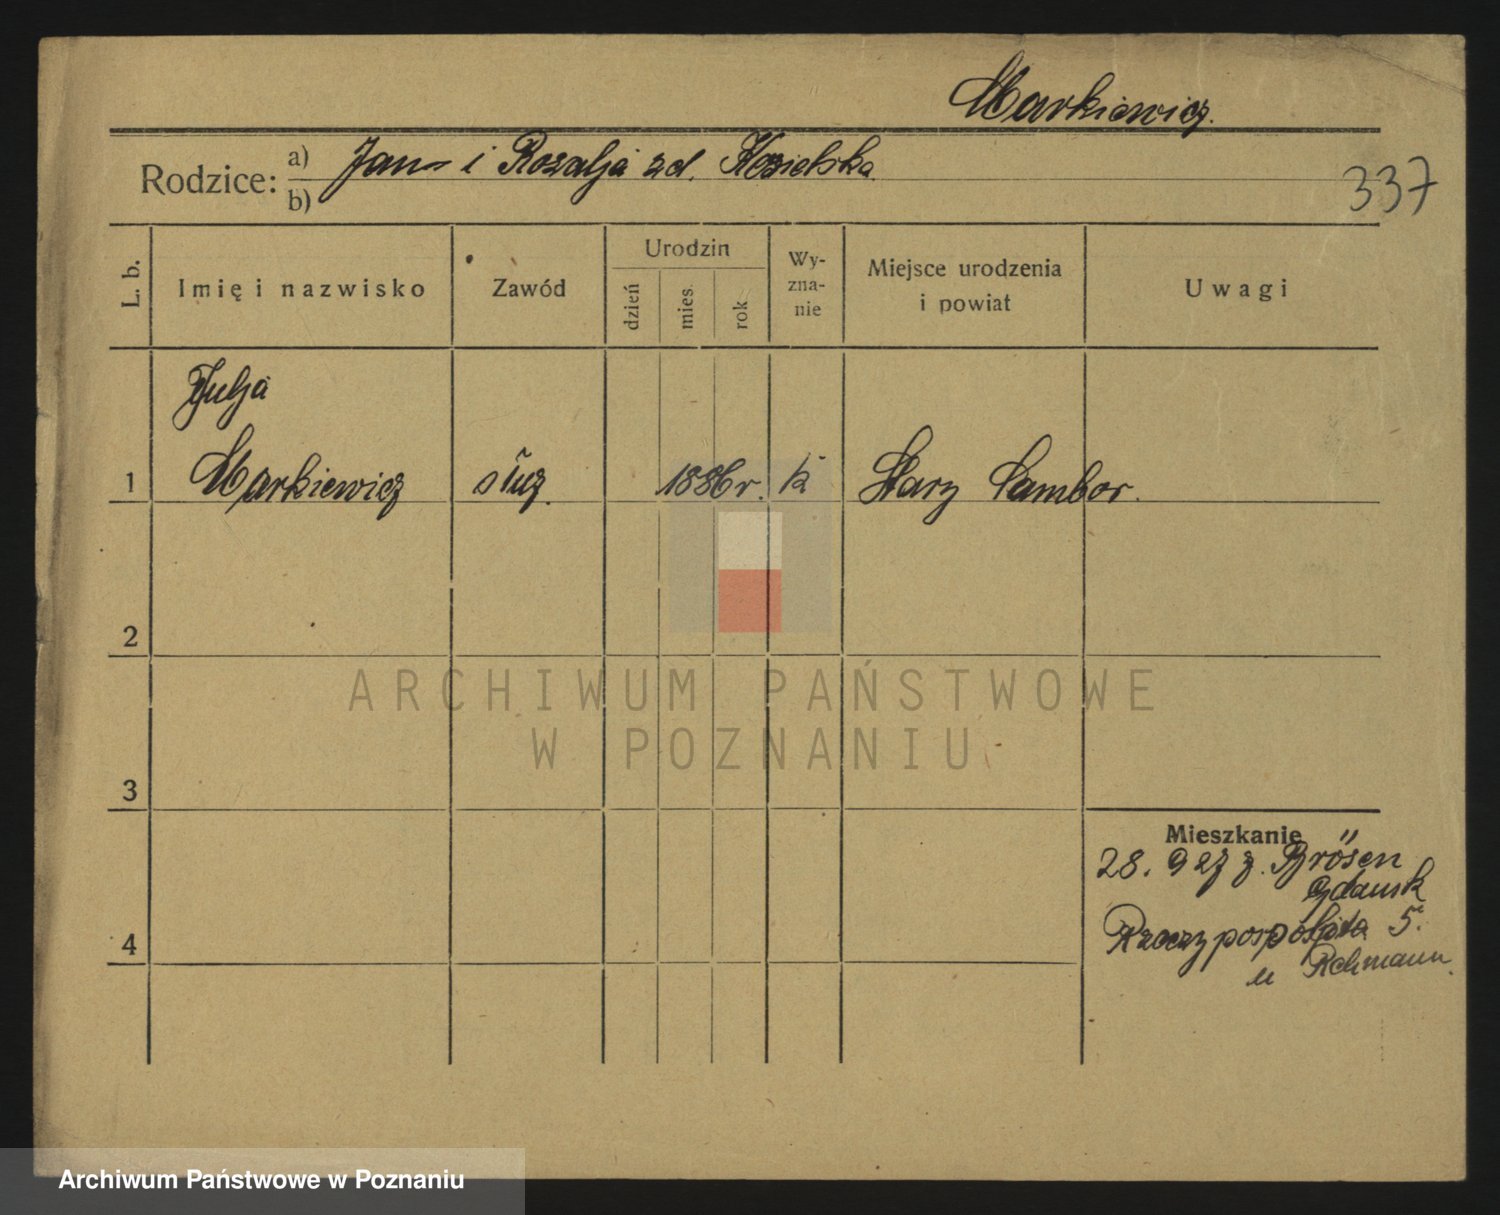 Markiewicz.
Rodzice: a) Jan i Rozalja zd. Kozielska
b)
337
L. b.
Imię i nazwisko
Zawód
Urodzin
dzień
mies.
rok
Wy-
zna-
nie
Miejsce urodzenia
i powiat
Uwagi
Julja
1 Markiewicz służ. 1886 r. k Stary Sambor.
2
ARCHIWUM PAŃSTWOWE
W POZNANIU
3
Mieszkanie
28. 9 27 z. Brösen
Gdansk
Rzeczypospolita 5.
4
u
Archiwum Państwowe w Poznaniu